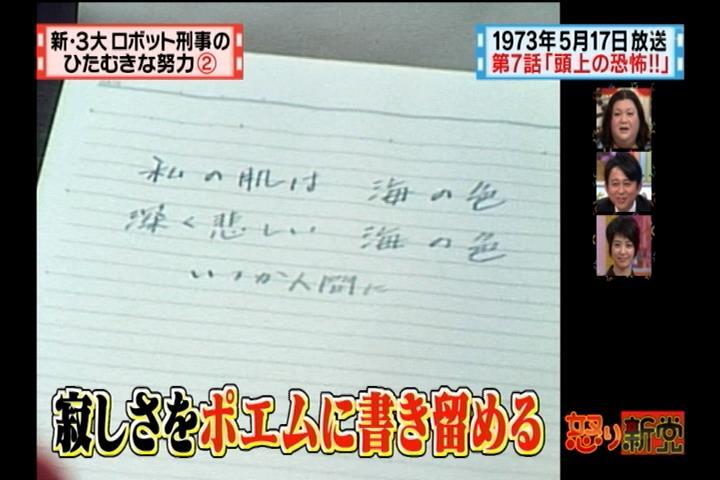 新・3大 ロボット刑事の
ひたむきな努力②
1973年5月17日放送
第7話「頭上の恐怖!!」
私の肌は 海の色
深く悲しい 海の色
いつか人間に
寂しさをポエムに書き留める
怒り新党